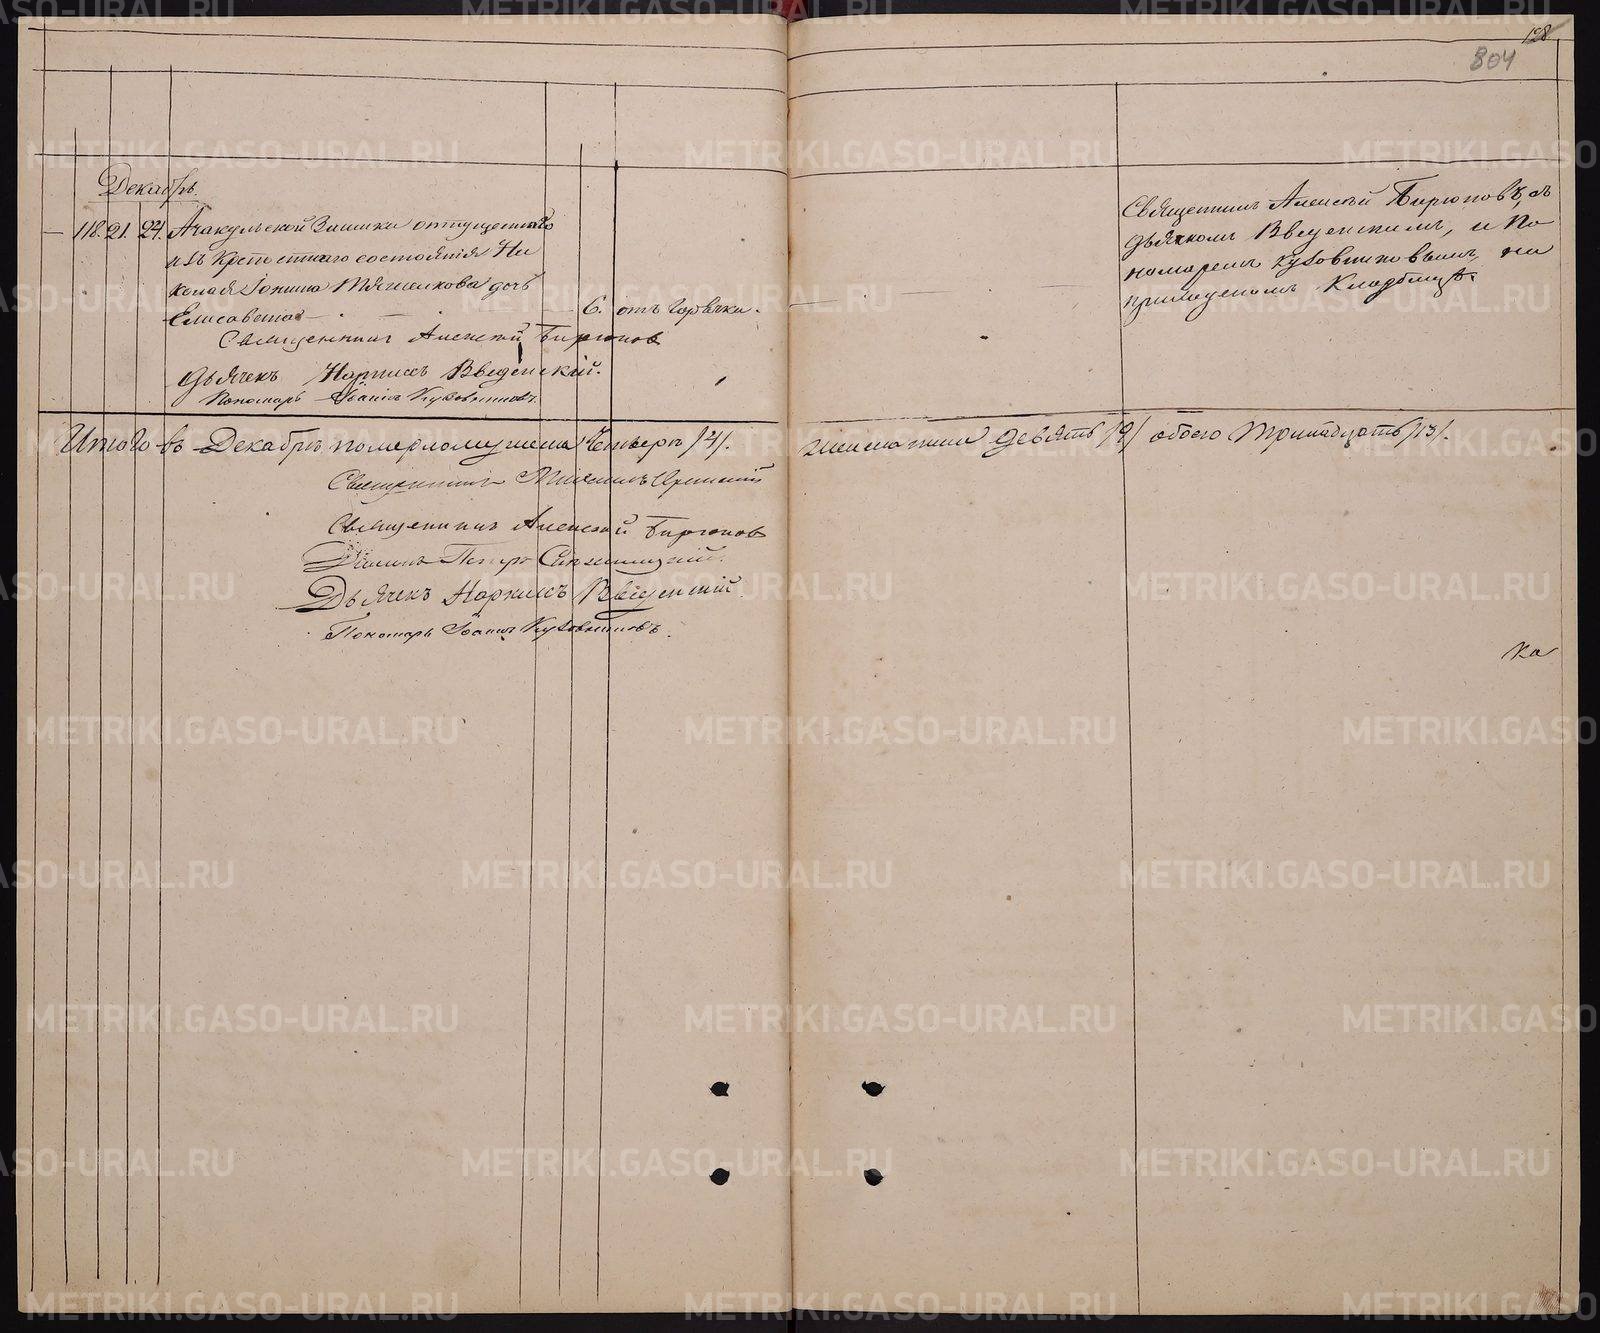 128
804
Декабрь.
118. 21. 24. Аракульской Заимки отпущеннаго
изъ Крѣпостнаго состоянія Ни
колая Іонина Тягнелкова дочь
Елисавета 6. отъ горячки.
Священникъ Алексѣй Бирюков
Дьячекъ Наркисъ Введенскій.
Пономарь Іоаннъ Кузовниковъ.
Священникъ Алексѣй Бирюковъ, съ
дьячкомъ Введенскимъ, и По
номаремъ Кузовниковымъ, на
приходскомъ Кладбищѣ.
Итого въ Декабрѣ померло мужеска Четыре /4/. женска пола девять /9/ обоего Тринадцать /13/.
Священникъ Михаилъ
Священникъ Алексѣй Бирюков
Діаконъ Петръ
Дьячекъ Наркисъ Введенскій.
Пономарь Іоаннъ Кузовниковъ.
Ка
METRIKI.GASO-URAL.RU